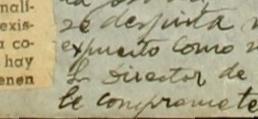 nali-
exis-
a co-
hay
enen
se desgusta
expuesto como
El Director de
le compromete